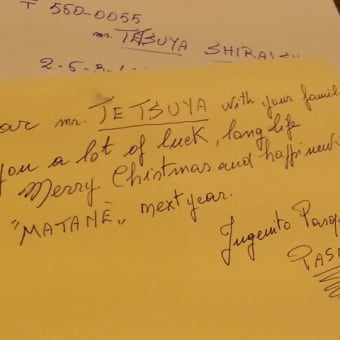 〒 550-0055
mr. TETSUYA SHIRAI
2-5-3-1
ar mr. TETSUYA with your famil
you a lot of luck, long life
Merry Chistmas and happi new
"MATANÈ" next year.